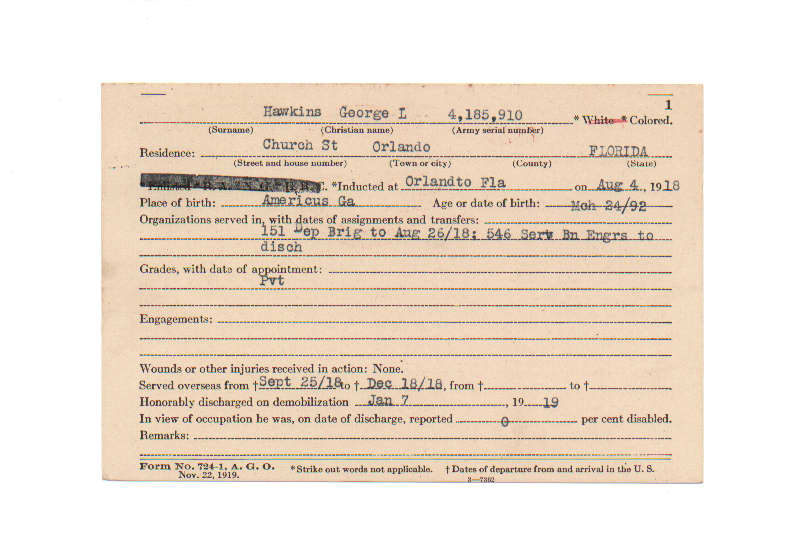 1
Hawkins George L 4,185,910 * White * Colored.
(Surname) (Christian name) (Army serial number)
Residence: Church St Orlando FLORIDA
(Street and house number) (Town or city) (County) (State)
*Inducted at Orlandto Fla on Aug 4, 1918
Place of birth: Americus Ga Age or date of birth: Mch 24/92
Organizations served in, with dates of assignments and transfers:
151 Dep Brig to Aug 26/18; 546 Serv Bn Engrs to
disch
Grades, with date of appointment:
Pvt
Engagements:
Wounds or other injuries received in action: None.
Served overseas from † Sept 25/18 to † Dec 18/18, from † to †
Honorably discharged on demobilization Jan 7, 19 19
In view of occupation he was, on date of discharge, reported 0 per cent disabled.
Remarks:
Form No. 724-1, A. G. O. *Strike out words not applicable. † Dates of departure from and arrival in the U. S.
Nov. 22, 1919. 3—7302